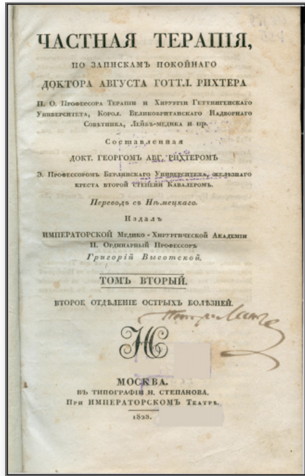 ЧАСТНАЯ ТЕРАПІЯ,
ПО ЗАПИСКАМЪ ПОКОЙНАГО
ДОКТОРА АВГУСТА ГОТТ.І. РИХТЕРА
П. О. Профессора Терапіи и Хирургіи Геттингенскаго
Университета, Корол. Великобританскаго Надворнаго
Совѣтника, Лейбъ-медика и пр.
Составленная
ДОКТ. ГЕОРГОМЪ АВГ. РИХТЕРОМЪ
Э. Профессоромъ Берлинскаго Университета, желѣзнаго
креста второй степени Кавалеромъ.
Переводъ съ Нѣмецкаго.
Издалъ
ИМПЕРАТОРСКОЙ Медико-Хирургической Академіи
П. Ординарный Профессоръ
Григорій Высотской.
ТОМЪ ВТОРЫЙ.
ВТОРОЕ ОТДѢЛЕНІЕ ОСТРЫХЪ БОЛѢЗНЕЙ.
МОСКВА.
ВЪ ТИПОГРАФІИ Н. СТЕПАНОВА.
При ИМПЕРАТОРСКОМЪ Театрѣ.